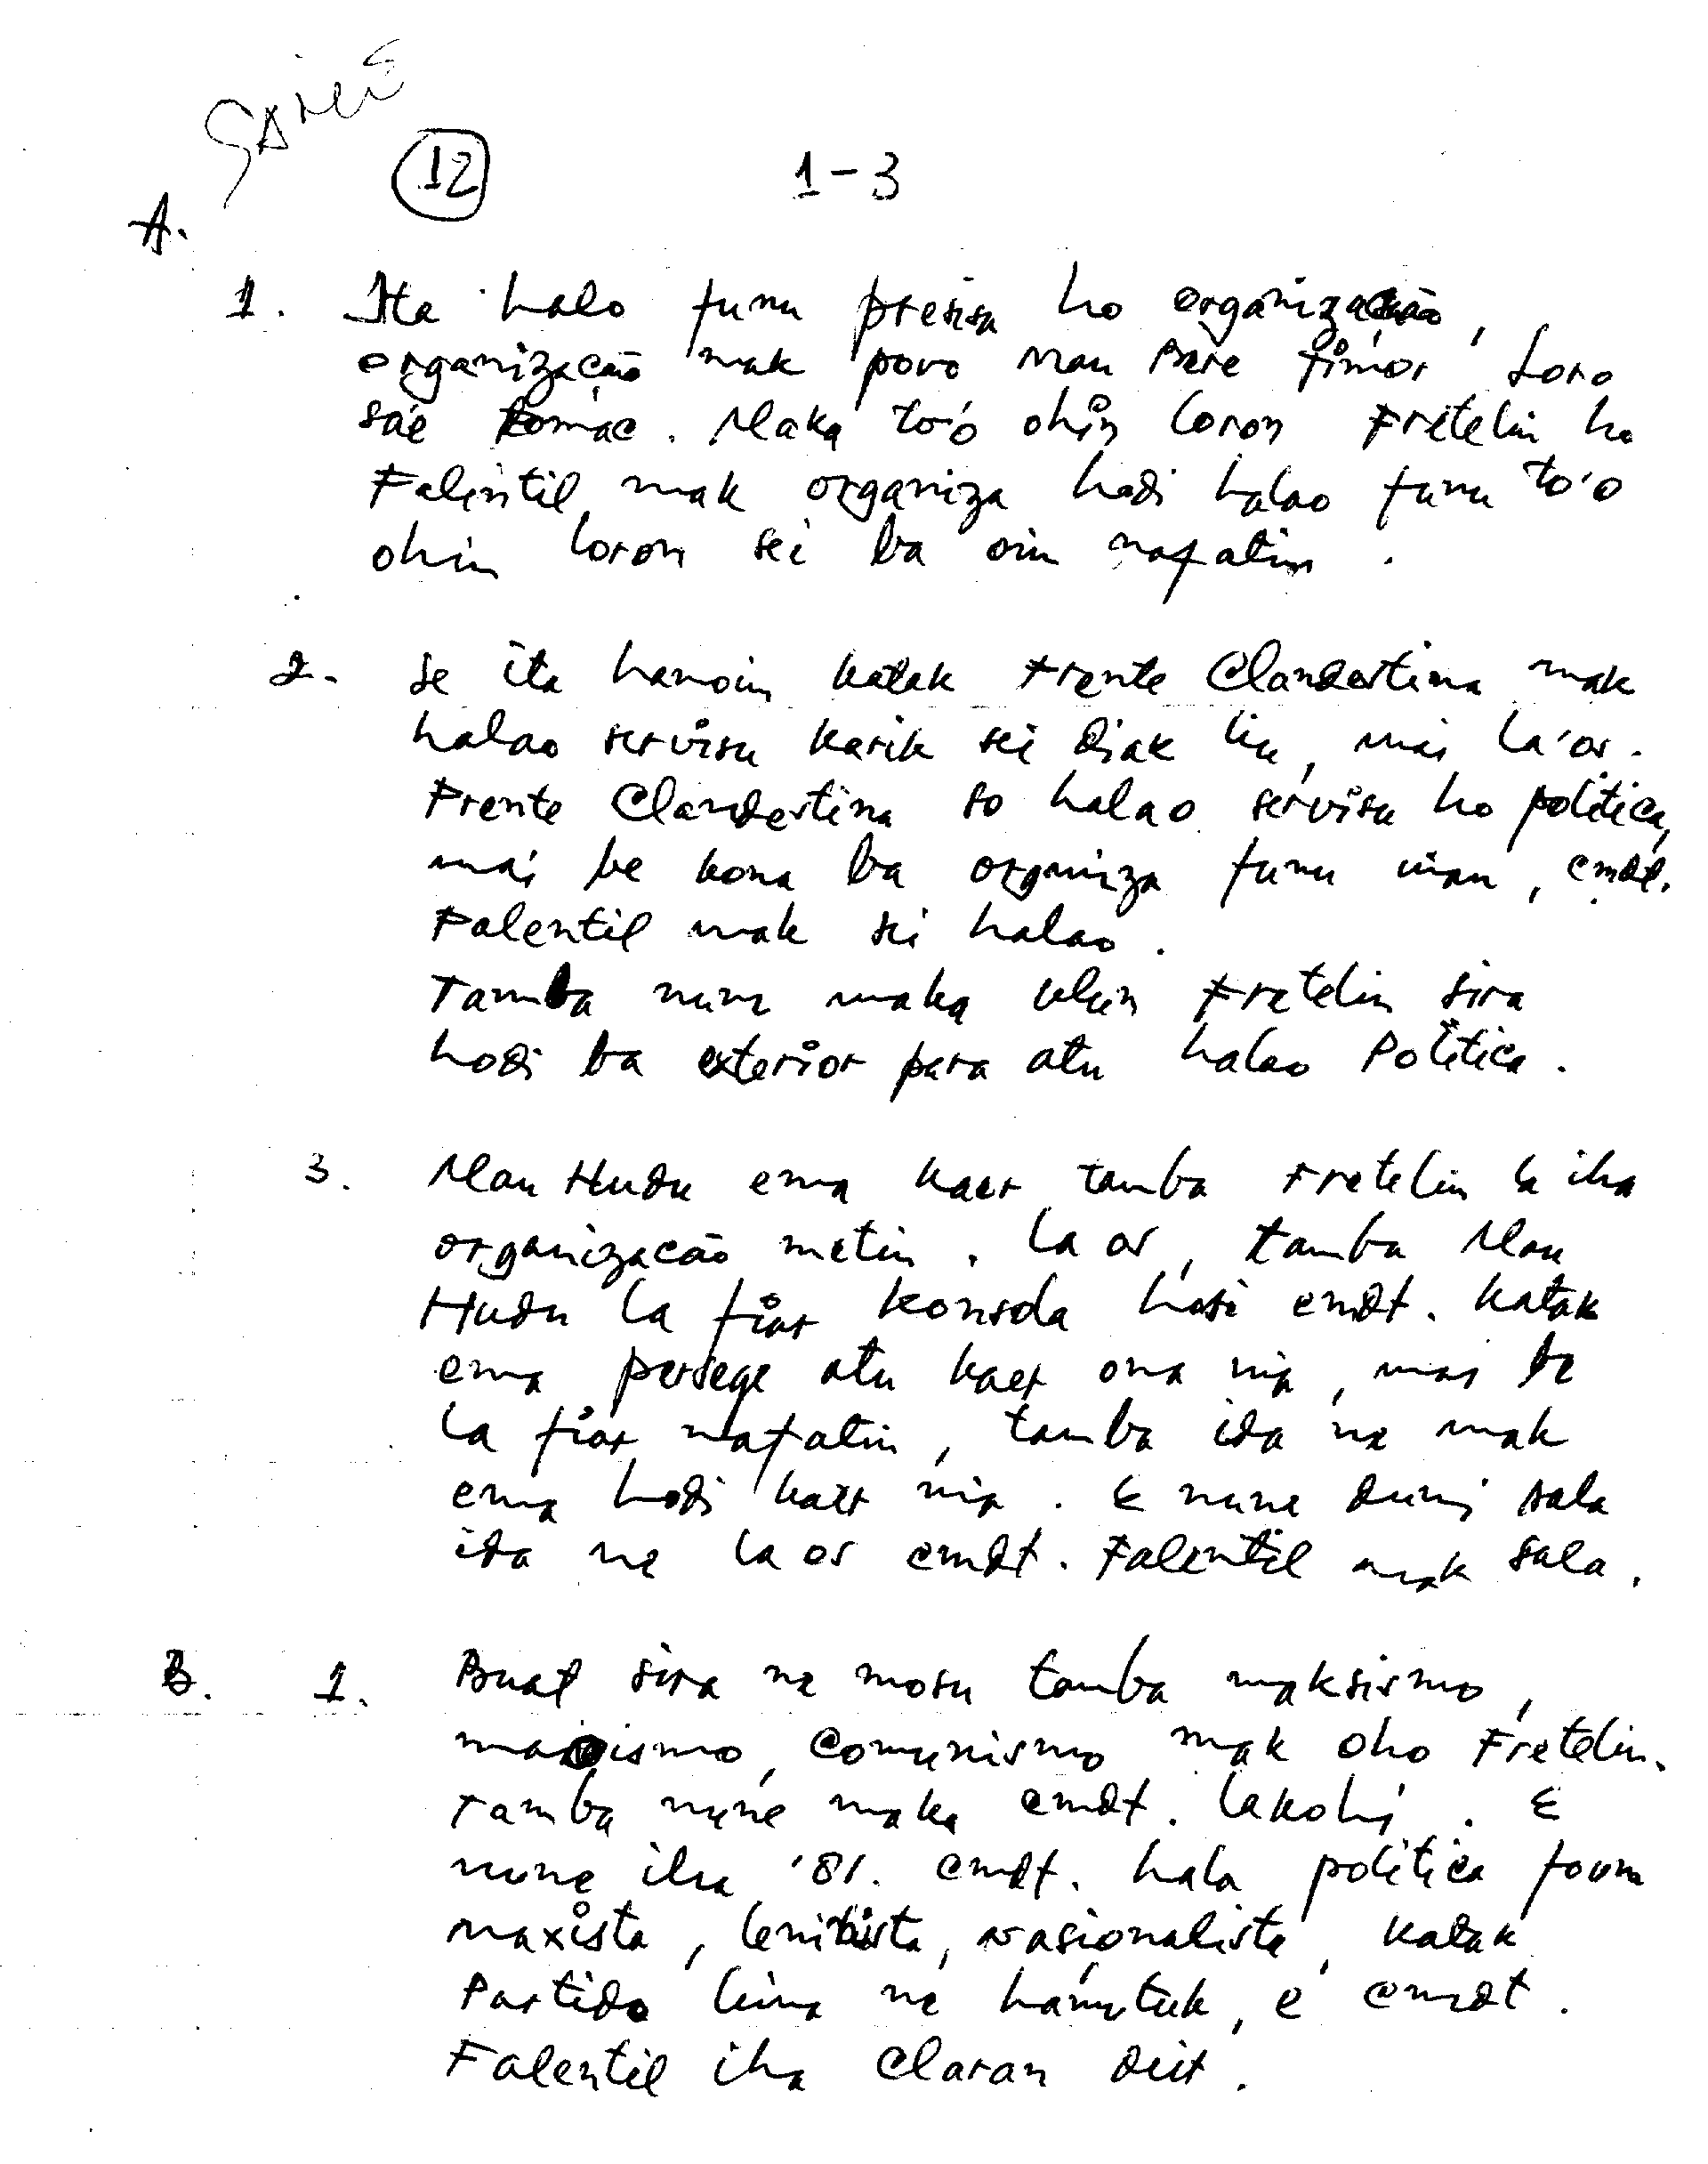 12
1-3
A.
1. Ita halo funu presisa ho organização,
organização mak povo Mau Bere Timor Loro
sáe tomac. Maka to'o ohin loron Fretelin ho
Falintil mak organiza hodi halao funu to'o
ohin loron sei ba oin nafatin.
2. Se ita hanoin katak Frente Clandestina mak
halao servisu karik sei diak liu, mai la'os.
Frente Clandestina so halao servisu ho politica,
mai be kona ba organiza funu nian, cmdt.
Falentil mak sei halao.
Tamba nune maka ulun Fretelin sira
hodi ba exterior para atu halao Politica.
3. Mau Hudu ema kaer tamba Fretelin la iha
organizacão metin. La os, tamba Mau
Hudu la fiar konsda hosi cmdt. katak
ema persege atu kaer ona nia, mai be
la fiar nafatin, tamba ida ne mak
ema hodi kaer nia. E nune duni sala
ida ne la os cmdt. Falentil mak sala.
B. 1. Buat sira ne mosu tamba maksismo,
maoismo, comunismo mak oho Fretelin.
Tamba nune maka cmdt. lakohi. E
nune iha '81. cmdt. hala politica foun
maxista, nasionalista, katak
Partido lima ne hamutuk, e cmdt.
Falentil iha claran deit.